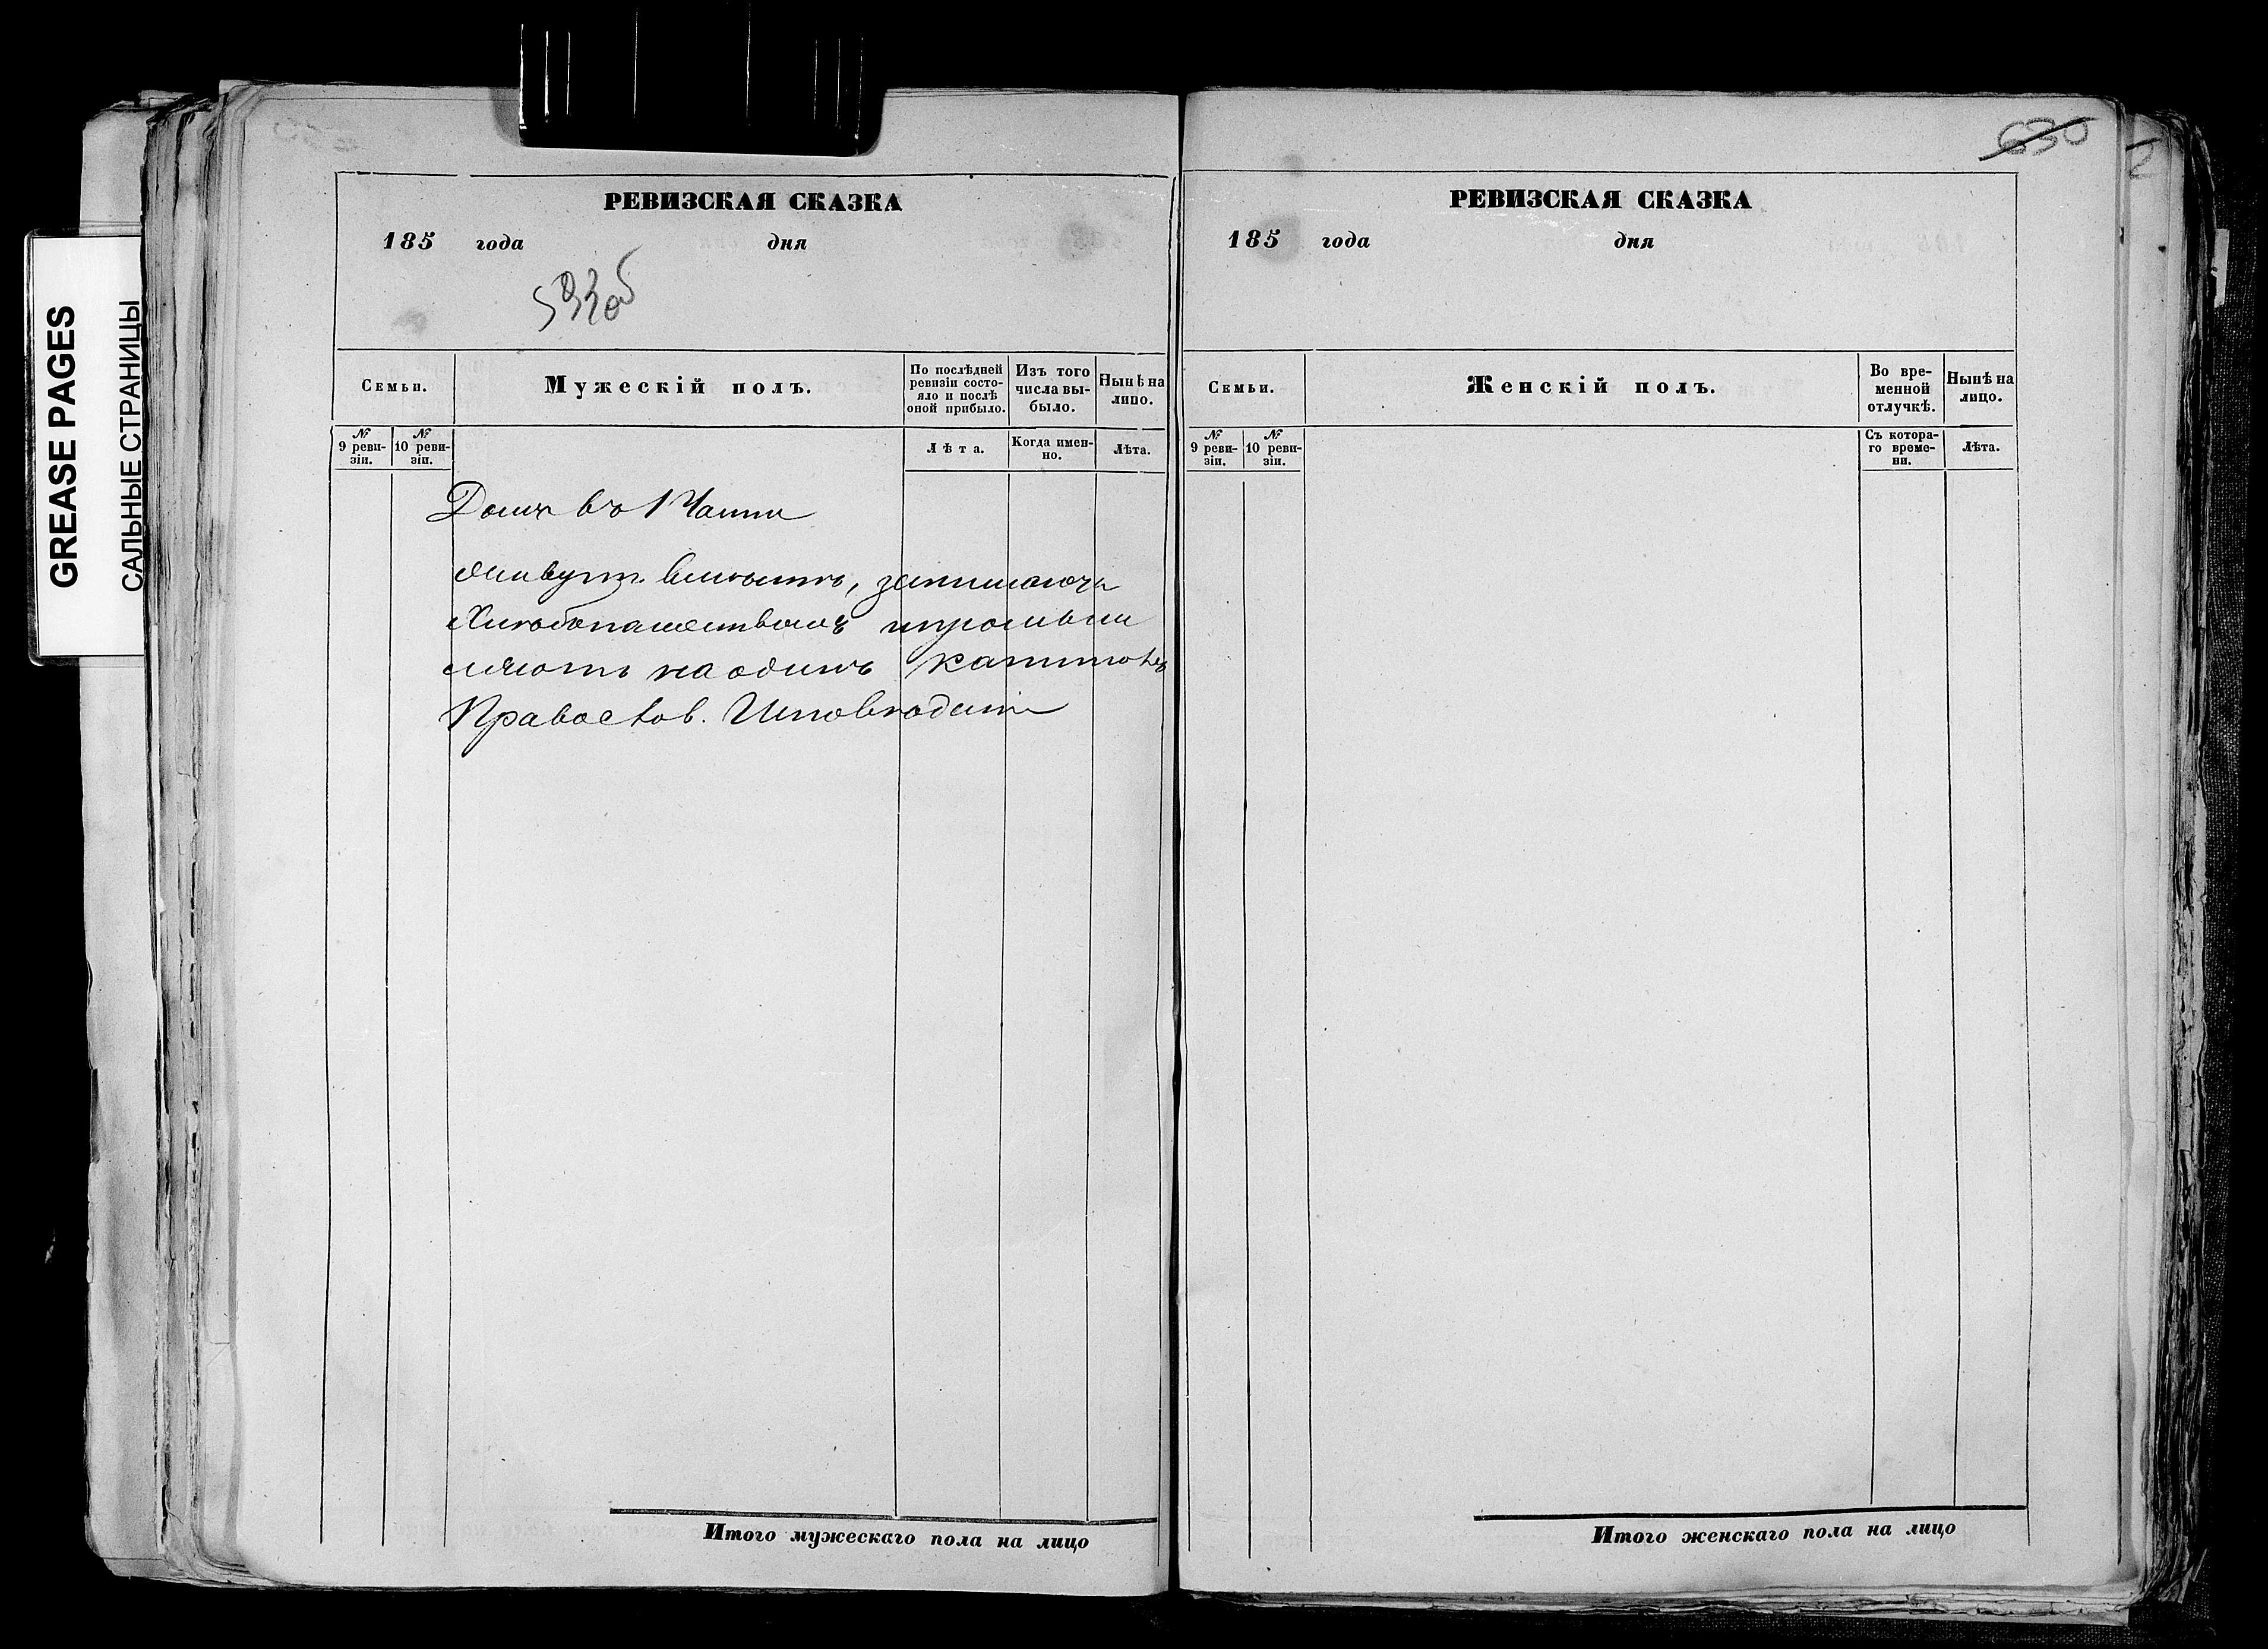 GREASE PAGES
САЛЬНЫЕ СТРАНИЦЫ
РЕВИЗСКАЯ СКАЗКА
185 года дня
Семьи.
Мужескій полъ.
По послѣдней ревизіи состо-
яло и послѣ
оной прибыло.
Изъ того
числа вы-
было.
Нынѣ на
лицо.
№
9 реви-
зіи.
№
10 реви-
зіи.
Лѣта.
Когда имен-
но.
Лѣта.
Домъ въ 1 Части
Живутъ вмѣстѣ, занимаются
Хлѣбопашествомъ и промыш
ляютъ на одинъ капиталъ
Православ. Исповѣданія
Итого мужескаго пола на лицо
630
РЕВИЗСКАЯ СКАЗКА
185 года дня
Семьи.
Женскій полъ.
Во вре-
менной
отлучкѣ.
Нынѣ на
лицо.
№
9 реви-
зіи.
№
10 реви-
зіи.
Съ котора-
го време-
ни.
Лѣта.
Итого женскаго пола на лицо